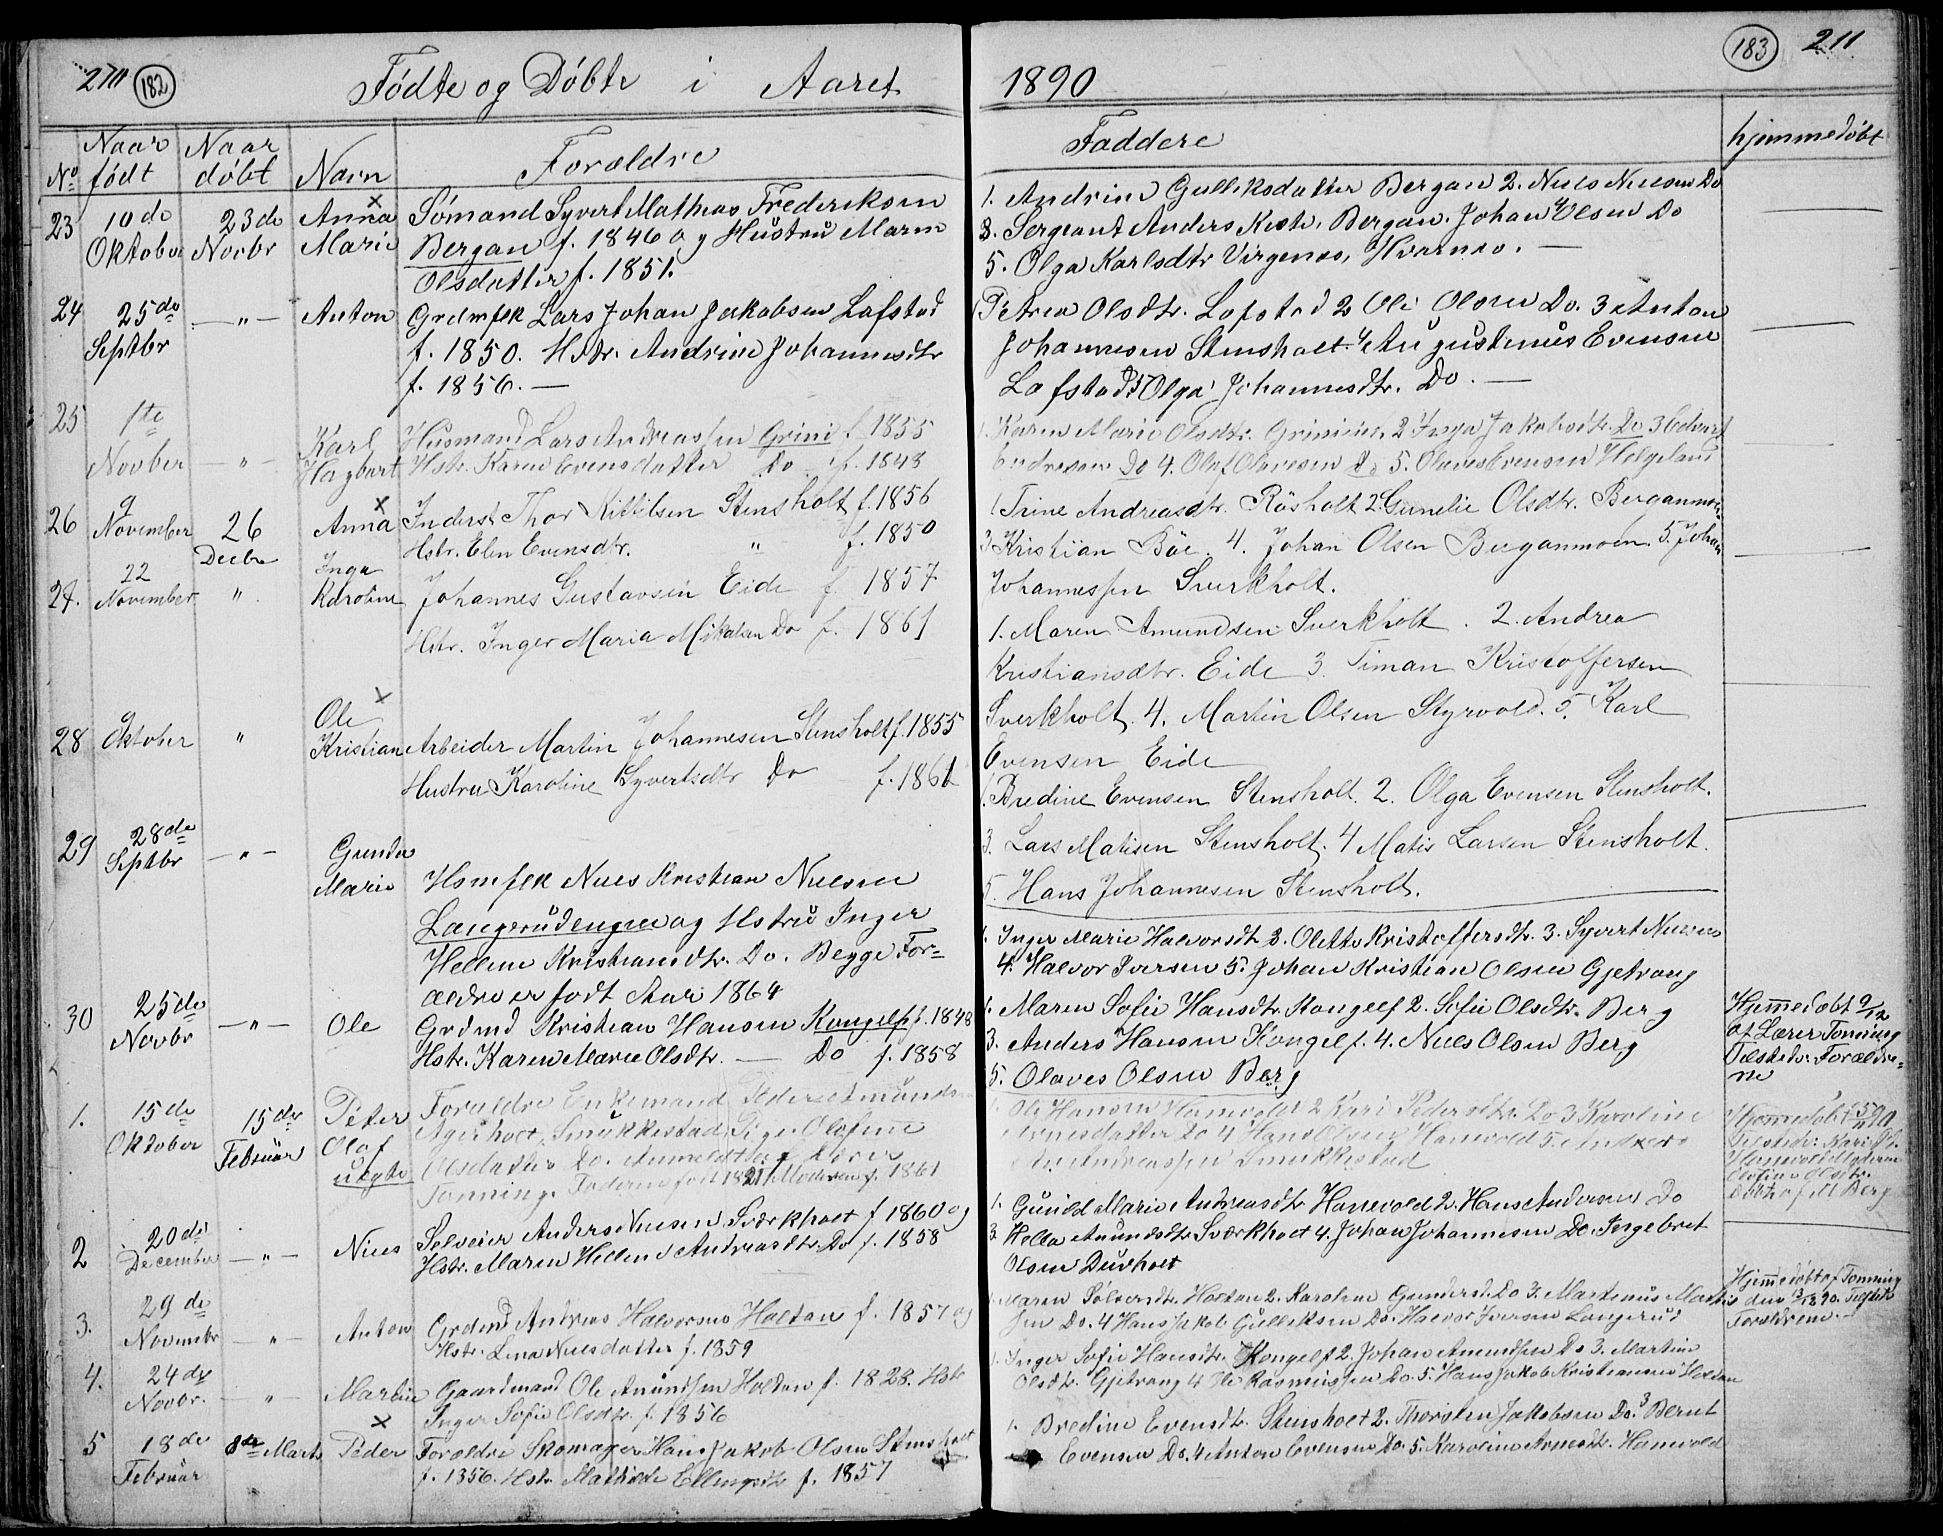 210 (182) Fødte og Døbte i Aaret
No Naar født Naar døbt Navn Forældre
23 10de Oktober 23de Novbr Anna Marie Sømand Syvert Mathias Frederiksen
Bergan f. 1846 og Hüstrü Maren
Olsdatter f. 1851.
24 25de Septbr — " — Anton Grdmflk Lars Johan Jakobsen Lofstad
f. 1850. Hstr. Andrine Johannesdtr
f. 1856. —
25 1te Novber — " — Karl Hagbart Hüsmand Lars Andreassen Grini f. 1855
Hstr. Karen Evensdatter Do f. 1843
26 9 November 26 Decbr Anna Inderst Thor Kittilsen Stensholt f. 1856
Hstr. Elen Evensdtr. " f. 1850
27. 22 November " Inga Karoline Johannes Gustavsen Eide f. 1857
Hstr. Inger Maria Mikalsen Do f. 1861
28 9 Oktober " Ole Kristian Arbeider Martin Johannesen Stensholt f. 1855
Hustru Karoline Syvertsdtr Do f. 1861
29 28de Septbr — " — Gunda Marie Hsmflk Niels Kristian Nielsen
Langerüdengen og Hstrü Inger
Hellene Kristiansdtr. Do. Begge For=
ældre er født Aar 1864
30 25de Novbr — " — Ole Grdmd Kristian Hansen Kongelf f. 1848
Hstr. Karen Marie Olsdtr. — Do f. 1858
1. 15de Oktober 15de Februar Peter Olaf uægte Forældre Enkemand Peder Amünds-
Agerholt, Smukkestad Pige Olefine
Olsdatter Do. Anmeldt af Lærer
Tonning. Faderen født 1821 Moderen f. 1861
2 20de December — " — Niels Selveier Anders Nielsen Sværkholt f 1860 og
Hstr. Maren Hellene Andreasdtr. Do f. 1858
3. 29de Novembr — " — Anton Grdmd Andreas Halvorsen Holtan f. 1857 og
Hstr. Lina Nielsdatter f. 1859
4. 24de Novbr. — " — Martin Gaardmand Ole Amündsen Holtan f. 1828. Hstr
Inger Sofie Olsdtr. f. 1856
5 18de Februar 8de Marts Peder Forældre Skomager Hans Jakob Olsen Stensholt
f. 1856. Hstr. Mathilde Ellingsdtr f. 1857
1890 (183) 211
Faddere hjemmedøbt
1. Andrine Gulliksdatter Bergan 2. Niels Nielsen Do
3. Sergeant Anders Krist. Bergan. Johan Olsen Do
5. Olga Karlsdtr Virgenes, Hvarnes. —
Petrea Olsdtr. Lofstad 2 Ole Olsen Do. 3 Anton
Johannesen Stensholt. 4 Augustinus Evensen
Lofstad 5 Olga Johannesdtr. Do. —
1. Karen Marie Olsdtr. Grinien. 2 Inga Jakobsdtr. Do 3 Edvart
Andresen Do 4. Oluf Olavesen Do 5. Olaves Evensen Helgeland
1 Trine Andreasdtr. Røsholt 2. Gunelie Olsdtr. Berganmoen.
3 Kristian Bøe. 4. Johan Olsen Berganmoen. 5. Johan
Johannessen Sverkholt.
1. Maren Amundsen Sverkholt. 2. Andrea
Kristiansdtr. Eide 3. Timan Kristoffersen
Sverkholt. 4. Martin Olsen Styrvold. 5. Karl
Evensen Eide
1. Bredine Evensen Stensholt. 2. Olga Evensen Stensholt.
3. Lars Matisen Stensholt. 4 Matis Larsen Stensholt.
5. Hans Johannesen Stensholt.
1. Inger Marie Halvorsdtr 2. Olette Kristoffersdtr. 3. Syvert Nielsen
4. Halvor Iversen 5. Johan Kristian Olsen Gjetrang
1. Maren Sofie Hansdtr. Kongelf 2. Sofie Olsdtr. Berg
3. Anders Hansen Kongelf. 4. Niels Olsen Berg
5. Olaves Olsen Berg
Hjemedøbt 9/12
af Lærer Tonning
Tilstede: Forældre=
ne
1. Ole Hansen Hanevold 2 Kari Pedersdtr. Do 3 Karoline
Arnesdatter Do 4 Hans Olsen Hanevold 5.
Andreassen Smukkestad
Hjemedøbt
Tilstede: Kari
Hanevold Moderen
Olefine Olsdtr.
Døbt af M Berg
1. Günild Marie Andreasdtr Hanevold 2. Hans Andersen Do
3. Hella Amündsdtr Sværkholt 4. Johan Johannesen Do. Ingebret
Olsen Düvholt
1. Maren Sølversdtr. Holtan 2. Karoline Gundersd. Do 3. Martinius Mathis
sen Do. 4 Hans Jakob Gülliksen Do. Halvor Iversen Langerüd
Hjemmedøbt af Tonning
den 13/12 1890. Tilstede
Forældrene.
1. Inger Sofie Hansdtr. Kongelf 2. Johan Amundsen Do 3. Martine
Olsdtr. Gjetrang 4 Ole Rasmüssen Do. 5. Hans Jakob Kristiansen Holtan
1. Bredine Evensdtr. Stensholt 2. Thorsten Jakobsen Do. 3 Bernt
Evensen Do. 4 Anton Evensen Do. 5. Karoline Arnesdtr. Hanevold